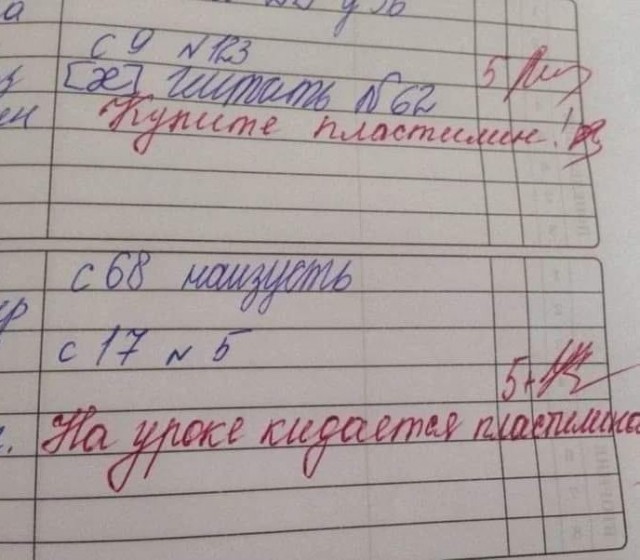 а
с 9 №123
[ж] читать №62
5
ен Купите пластилин!
с 68 наизусть
с 17 № 5
5+
На уроке кидается пластилино